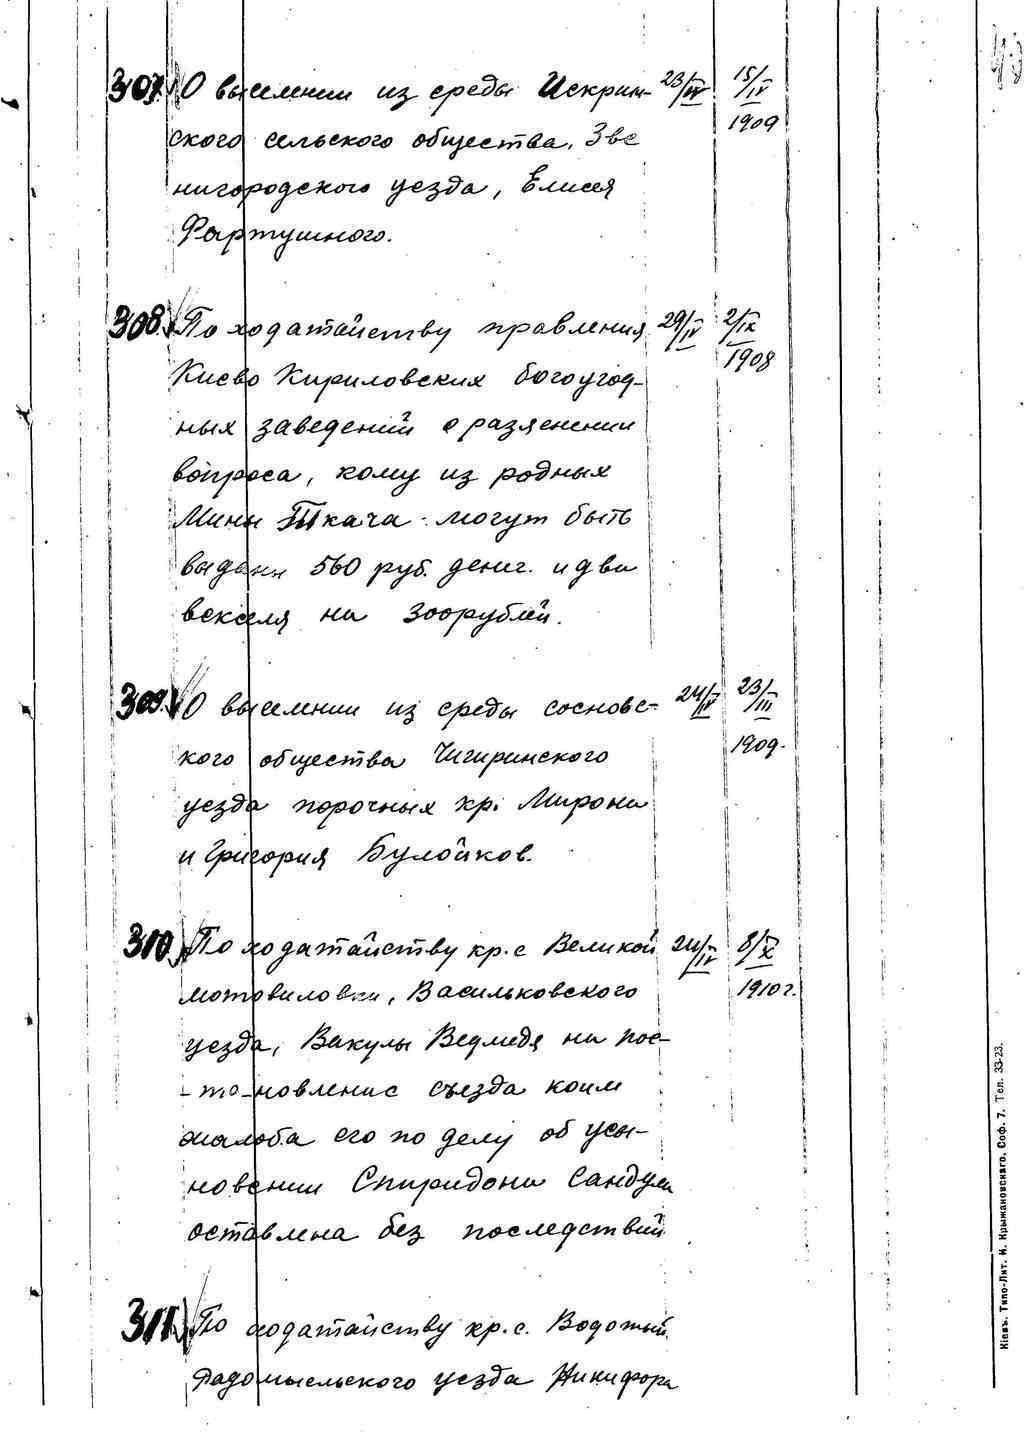 307. О выселении из среды Искрин- 23/IV 15/IV
ского сельского общества, Зве 1909
нигородского уезда, Елисея
Фартушного.
308. По ходатайству правления 29/IV 2/IX
Киево Кириловских богоугод- 1908
ных заведений о разяснении
вопроса, кому из родных
Мины Ткача могут быть
выданы 560 руб. дениг. и два
векселя на 300 рублей.
309. О выселении из среды сосновс- 24/IV 23/III
кого общества Чигиринского 1909.
уезда порочных кр. Мирона
и Григория Булойков.
310. По ходатайству кр. с Великой 24/IV 8/X
мотовиловки, Васильковского 1910 г.
уезда, Вакулы Ведмедя на пос-
-та-новление съезда коим
жалоба его по делу об усы-
новении Спиридона Сандула
оставлена без последствий
311. По ходатайству кр. с. Водотый
Радомысльского уезда Никифора
Кіевъ. Типо-Лит. И. Крыжановскаго, Соф. 7. Тел. 33-23.